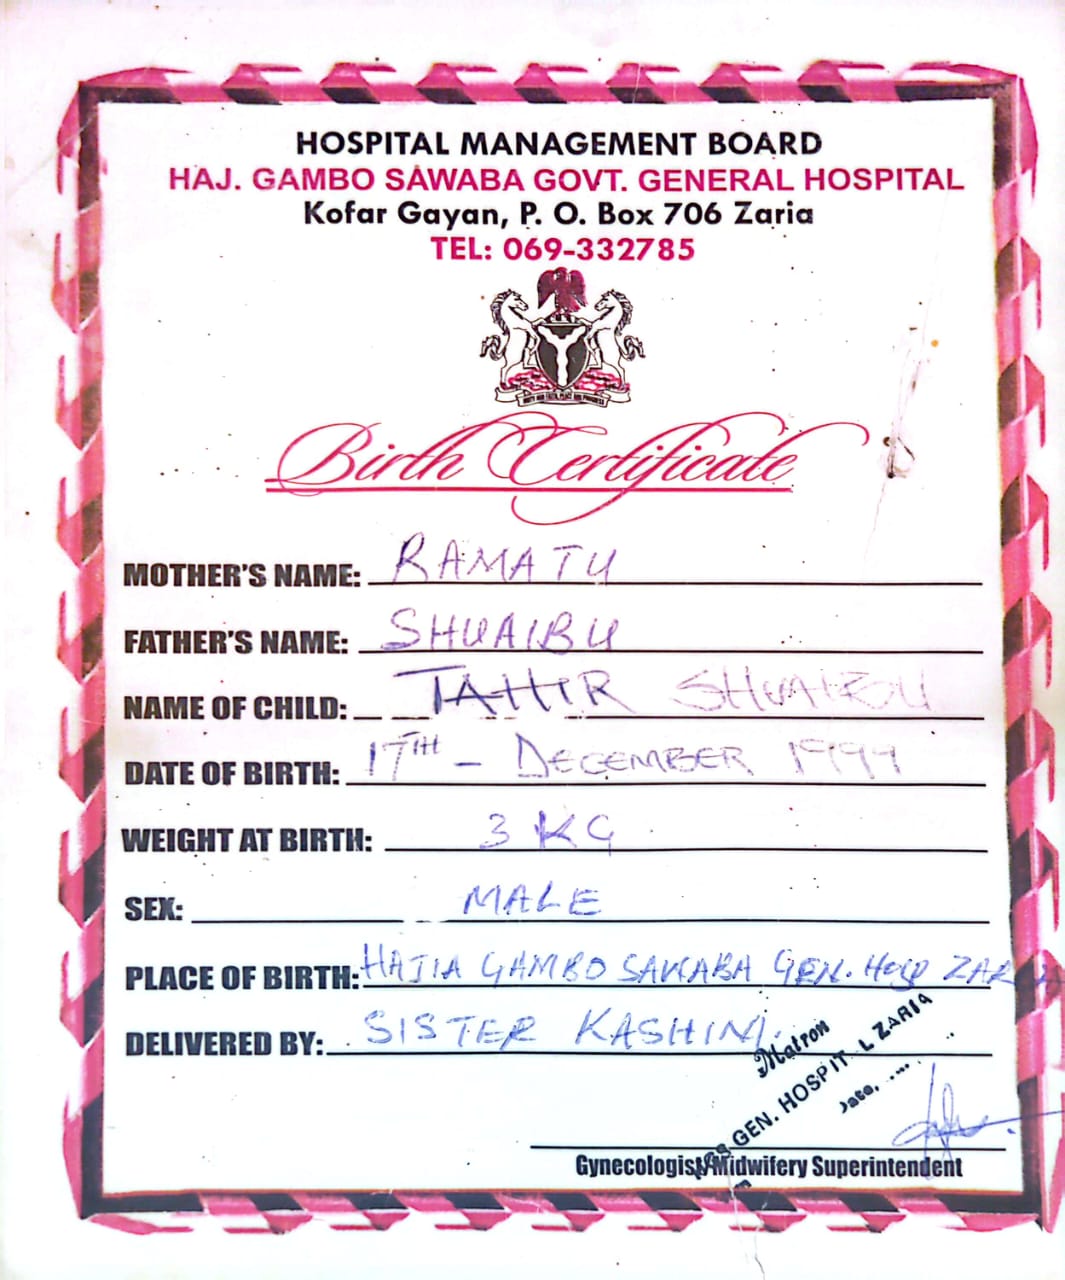 HOSPITAL MANAGEMENT BOARD
HAJ. GAMBO SAWABA GOVT. GENERAL HOSPITAL
Kofar Gayan, P. O. Box 706 Zaria
TEL: 069-332785
UNITY AND FAITH, PEACE AND PROGRESS
Birth Certificate
MOTHER'S NAME: RAMATU
FATHER'S NAME: SHUAIBU
NAME OF CHILD: TAHIR SHUAIBU
DATE OF BIRTH: 17TH - DECEMBER 1999
WEIGHT AT BIRTH: 3 KG
SEX: MALE
PLACE OF BIRTH: HAJIA GAMBO SAWABA GEN. HOSP ZARIA
DELIVERED BY: SISTER KASHIM
Matron
GEN. HOSPIT L ZARIA
Date, ....
Gynecologist/Midwifery Superintendent